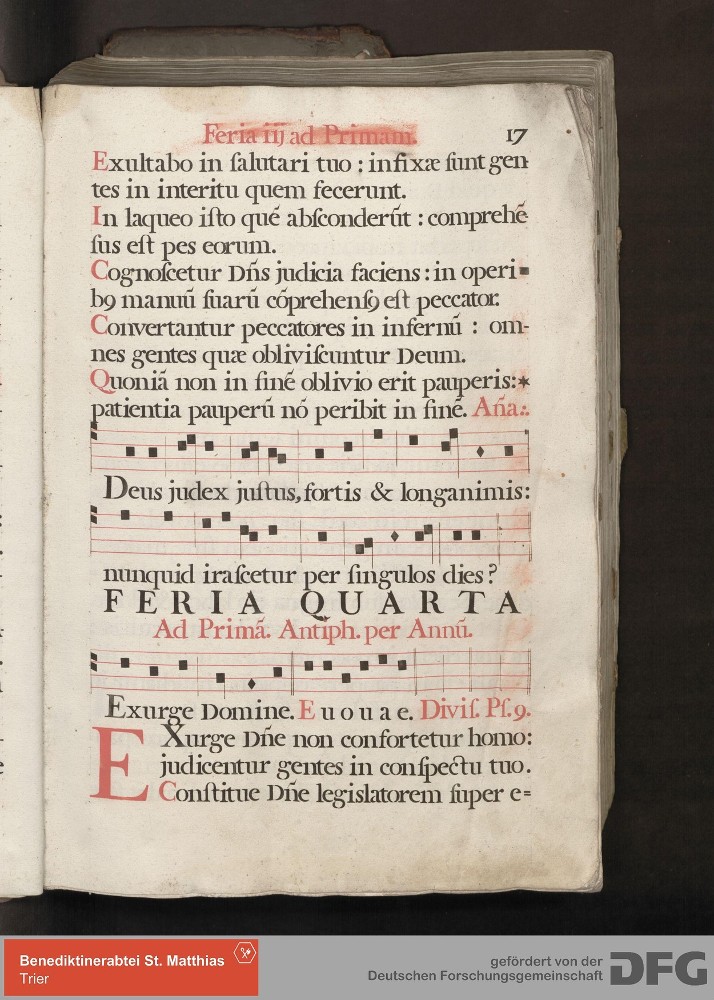 Feria iij ad Primam. 17
Exultabo in ſalutari tuo : infixæ ſunt gen-
tes in interitu quem fecerunt.
In laqueo iſto quē abſconderūt : comprehē
ſus eſt pes eorum.
Cognoſcetur Dn̄s judicia faciens : in operi=
bꝯ manuū ſuarū cōprehenſꝯ eſt peccator.
Convertantur peccatores in infernū : om-
nes gentes quæ obliviſcuntur Deum.
Quoniā non in finē oblivio erit pauperis:*
patientia pauperū nō peribit in finē. An̄a.
Deus judex juſtus, fortis & longanimis:
nunquid iraſcetur per ſingulos dies?
FERIA QUARTA
Ad Primā. Antiph. per Annū.
Exurge Domine. E u o u a e. Diviſ. Pſ. 9.
EXurge Dn̄e non confortetur homo:
judicentur gentes in conſpectu tuo.
Conſtitue Dn̄e legislatorem ſuper e=
Benediktinerabtei St. Matthias
Trier
gefördert von der
Deutschen Forschungsgemeinschaft
DFG